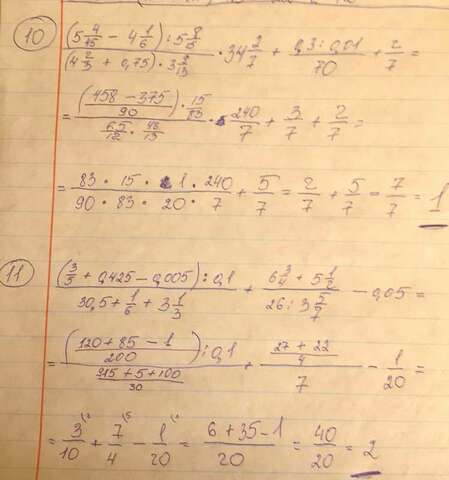 10) ((5 4/45 − 4 1/6) : 5 8/15) / ((4 2/3 + 0,75) · 3 9/13) · 34 2/7 + (0,3 : 0,01)/70 + 2/7 =
= (((458 − 375)/90) · 15/83) / (65/12 · 48/13) · 240/7 + 3/7 + 2/7 =
= (83 · 15 · 1 · 240)/(90 · 83 · 20 · 7) + 5/7 = 2/7 + 5/7 = 7/7 = 1
11) ((3/5 + 0,425 − 0,005) : 0,1) / (30,5 + 1/6 + 3 1/3) + (6 3/4 + 5 1/2)/(26 : 3 5/7) − 0,05 =
= (((120 + 85 − 1)/200) : 0,1) / ((915 + 5 + 100)/30) + ((27 + 22)/4)/7 − 1/20 =
= 3/10 + 7/4 − 1/20 = (6 + 35 − 1)/20 = 40/20 = 2